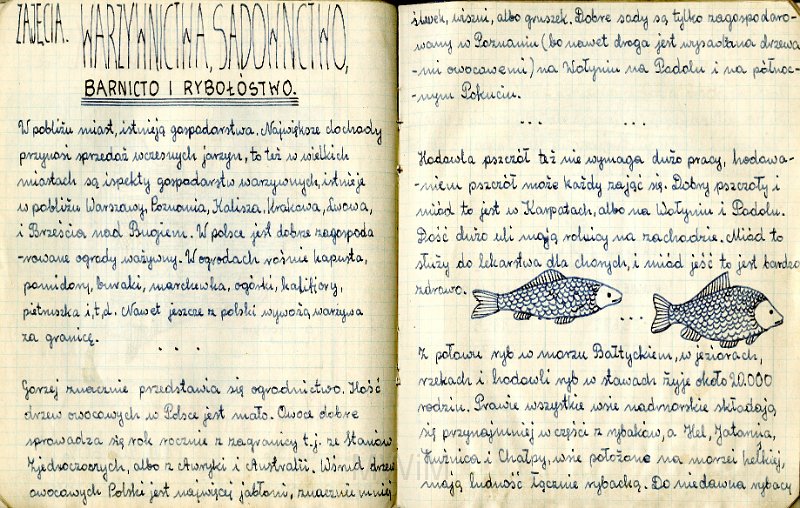 ZAJĘCIA. WARZYWNICTWA, SADOWNICTWO,
BARNICTO I RYBOŁÓSTWO.
W pobliżu miast, istnieją gospodarstwa. Największe dochady
przynosi sprzedaż wczesnych jarzyn, to też w wielkich
miastach są ispekty gospodarstw warzywnych, istnieje
w pobliżu Warszawy, Poznania, Kalisza, Krakowa, Lwowa,
i Brześcia nad Bugiem. W polsce jest dobrze zagospoda
-rowane ogrody ważywny. W ogrodach rośnie kapusta,
pomidory, buraki, marchewka, ogórki, kafifjory,
pietruszka i,t,d. Nawet jeszcze z polski wywożą warzywa
za granicę.
. . .
Gorzej znacznie przedstawia się ogrodnictwo. Ilość
drzew owocowych w Polsce jest mało. Owoce dobre
sprowadza się rok rocznie z zagranicy t.j. ze Stanów
Zjednoczocnych, albo z Awryki i Australii. Wśrud drzew
owocowych Polski jest najwięcej jabłoni, znacznie mniej
śliwek, wiśzni, albo gruszek. Dobre sady są tylko zagospodaro-
wany w Poznaniu (bo nawet droga jest wysadzana drzewa
-mi owocowemi) na Wołyniu na Podolu i na północ-
-nym Pokuciu.
... ...
Hodowla pszczół też nie wymaga dużo pracy, hodowa-
-niem pszczół może każdy zająć się. Dobry pszczoły i
miód to jest w Karpatach, albo na Wołyniu i Podolu.
Dość dużo uli mają rolnicy na zachodzie. Miód to
służy do lekarstwa dla chorych, i miód jeść to jest bardzo
zdrowo.
...
Z połowu ryb w morzu Bałtyckiem, w jeziorach,
rzekach i hodowli ryb w stawach żyje około 20.000
rodzin. Prawie wszystkie wsie nadmorskie składają
się przynajmniej w części z rybaków, a Hel, Jatarnja,
Kuźnica i Chałpy, wsie położone na morzei helkiej,
mają ludność łącznie rybacką. Do niedawna rybacy